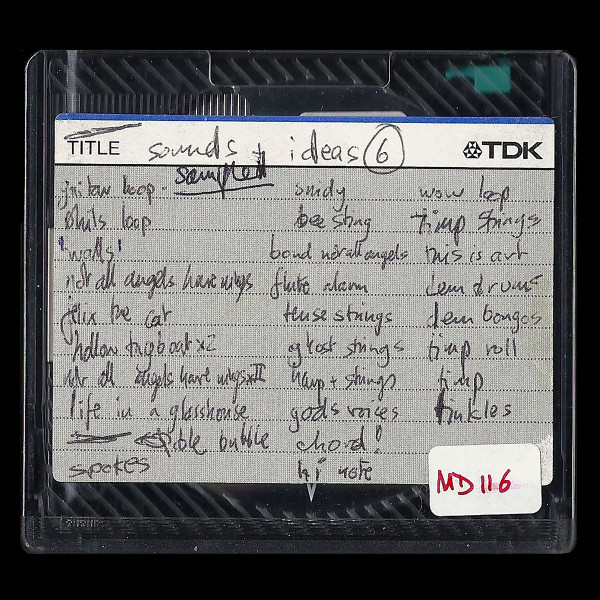 TITLE
sounds + ideas 6
TDK
sampled
guitar loop
Phils loop
'walls'
not all angels have wings
felix the cat
hollow tugboat x2
not all angels have wings II
life in a glasshouse
bubble
spokes
bee sting
bond not all angels
flute alarm
tense strings
ghost strings
harp + strings
gods voices
chord!
hi note
wow loop
timp strings
this is art
dem drums
dem bongos
timp roll
timp
tinkles
MD116